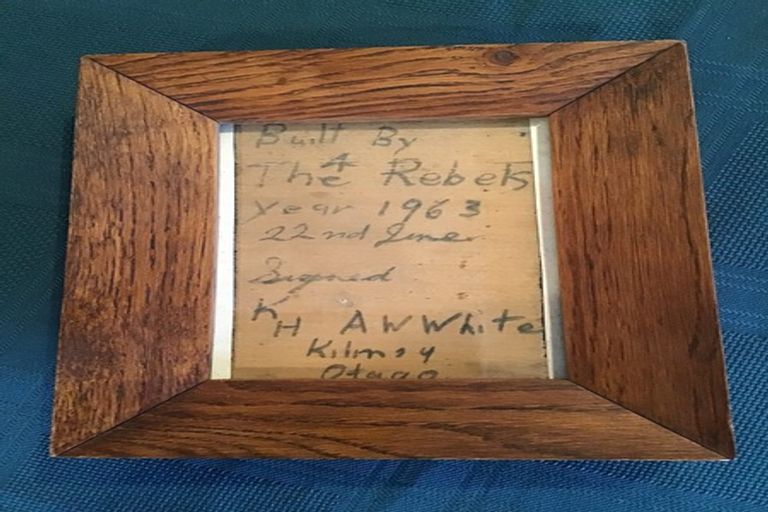 Built By
The 4 Rebels
Year 1963
22nd June
Signed
K H A W White
Kilmoy
Otago